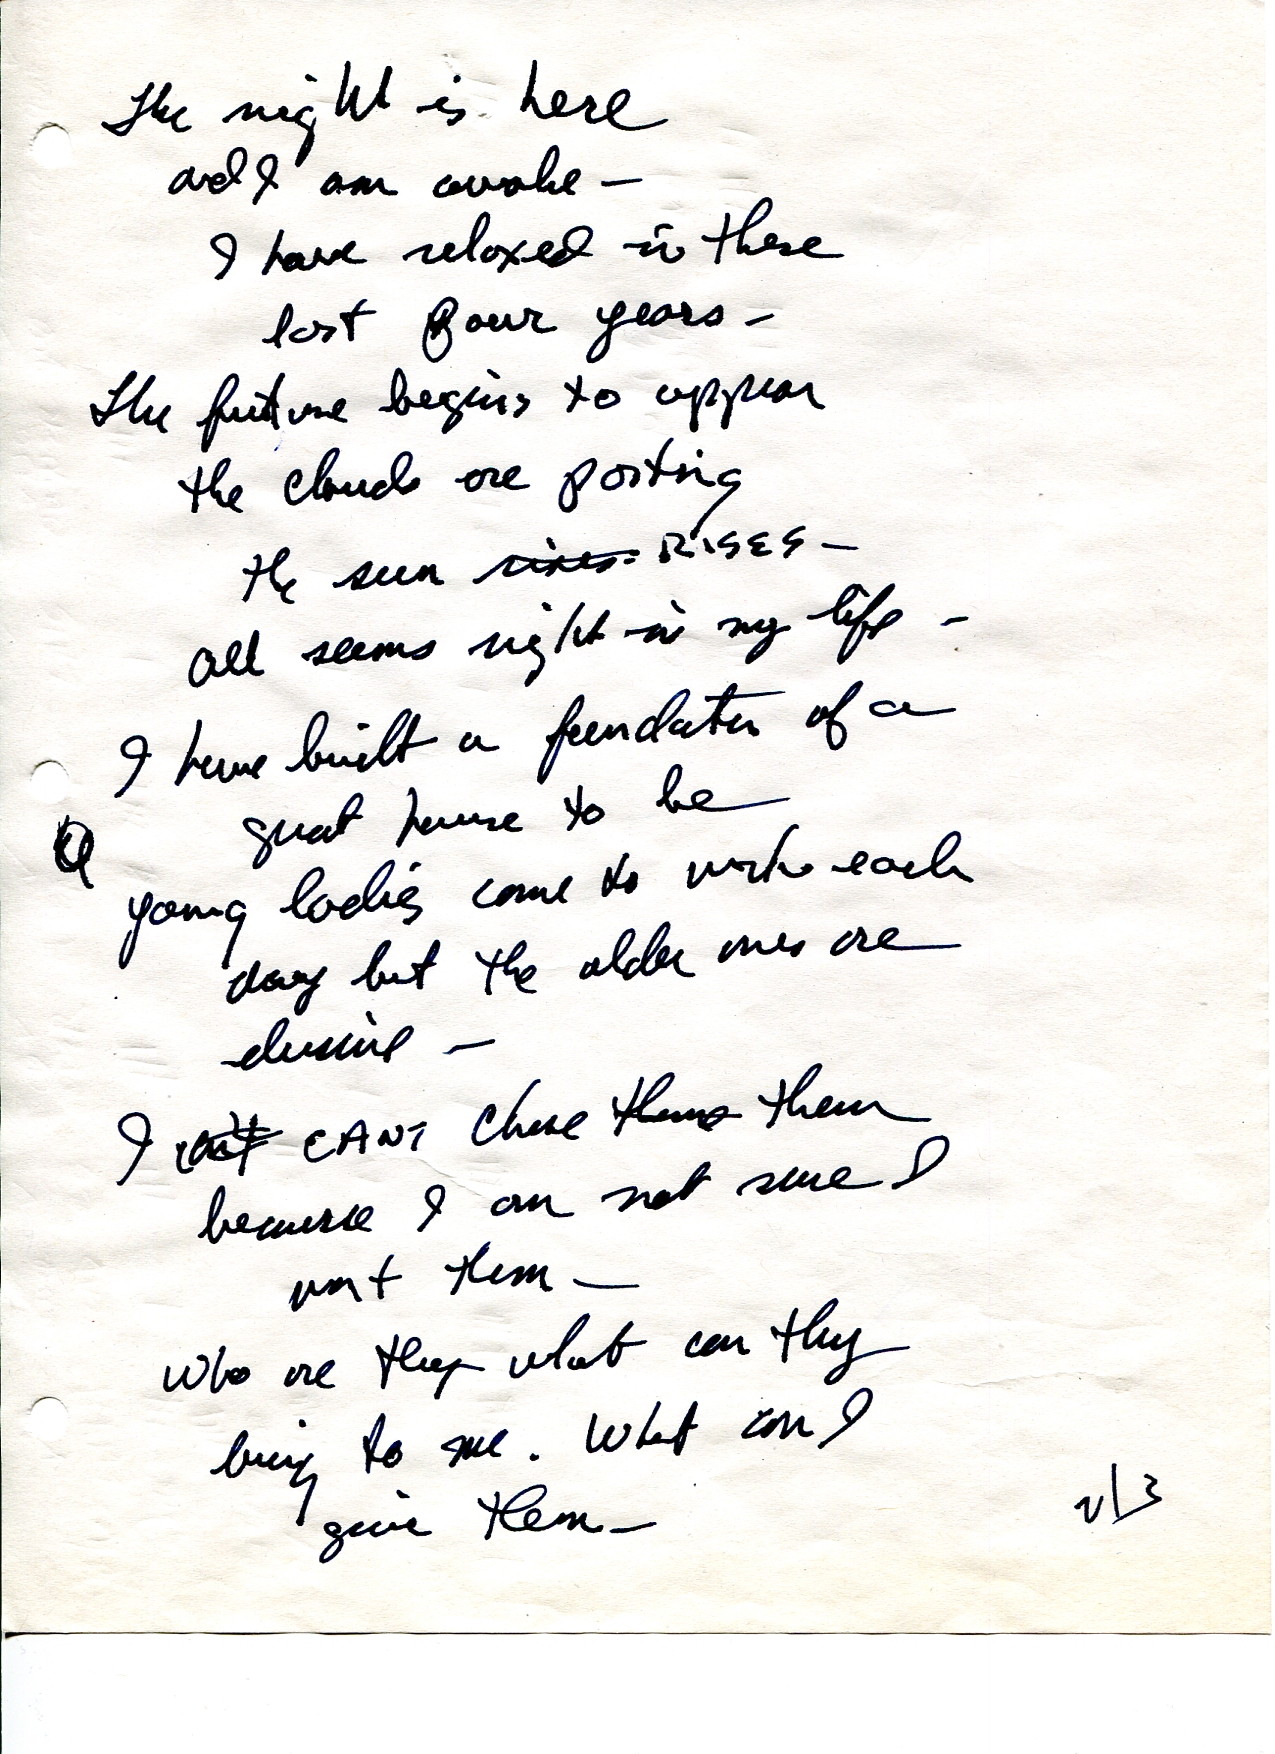 The night is here
and I am awake –
I have relaxed in these
last four years –
The future begins to appear
the clouds are parting
the sun rises RISES –
all seems right in my life –
I have built a foundation of a
great house to be
young ladies come to work each
day but the older ones are
elusive –
I can't CANT chose them
because I am not sure I
want them –
Who are they what can they
bring to me. What can I
give them –
2/3